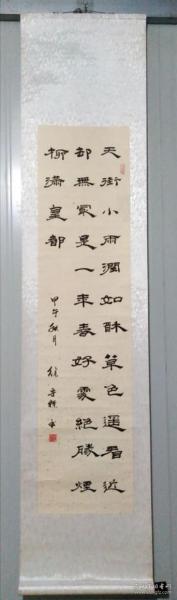 天街小雨潤如酥草色遥看近
却無最是一年春好處絶勝煙
柳滿皇都
甲午秋月